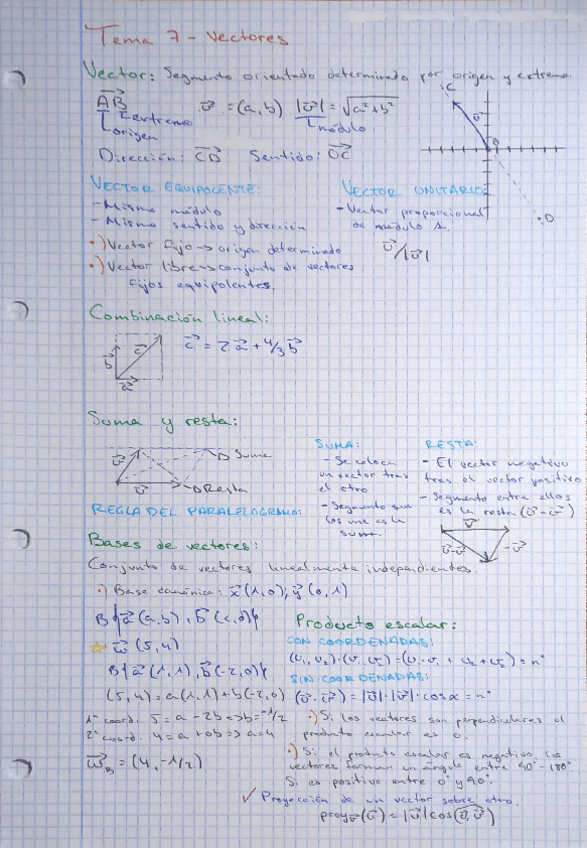 Tema 7 - Vectores
Vector: Segmento orientado determinado por origen y extremo.
AB v = (a,b) |v| = √a²+b²
extremo módulo
origen
Dirección: CD Sentido: OC
C
v
O
D
VECTOR EQUIPOLENTE:
- Mismo módulo
- Mismo sentido y dirección
·) Vector fijo → origen determinado
·) Vector libre → conjunto de vectores
fijos equipolentes.
VECTOR UNITARIO:
- Vector proporcional
de módulo 1.
v/|v|
Combinación lineal:
b c a
c = 2a + 4/3 b
Suma y resta:
Suma
Resta
REGLA DEL PARALELOGRAMO:
SUMA:
- Se coloca
un vector tras
el otro
- Segmento que
los une es la
suma.
RESTA:
- El vector negativo
tras el vector positivo
- Segmento entre ellos
es la resta
Bases de vectores:
Conjunto de vectores linealmente independientes.
·) Base canónica: x(1,0); y(0,1)
B{a(a,b), b(c,d)}
w(5,4)
B{a(1,1), b(-2,0)}
(5,4) = a(1,1) + b(-2,0)
1ª coord. 5 = a - 2b => b = -1/2
2ª coord. 4 = a + 0b => a = 4
w_B = (4, -1/2)
Producto escalar:
CON COORDENADAS:
SIN COORDENADAS:
·) Si los vectores son perpendiculares el
producto escalar es 0.
·) Si el producto escalar es negativo, los
vectores forman un ángulo entre 90° - 180°.
Si es positivo entre 0° y 90°.
✓ Proyección de un vector sobre otro.